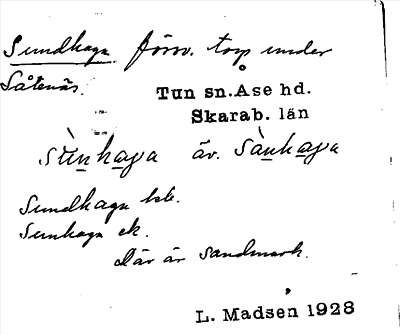 Sundhaga försv. torp under
Såtenäs.
Tun sn. Åse hd.
Skarab. län
sùnhaga äv. sànhaga
Sundhaga hk.
Sunhaga ek.
Där är sandmark.
L. Madsen 1928